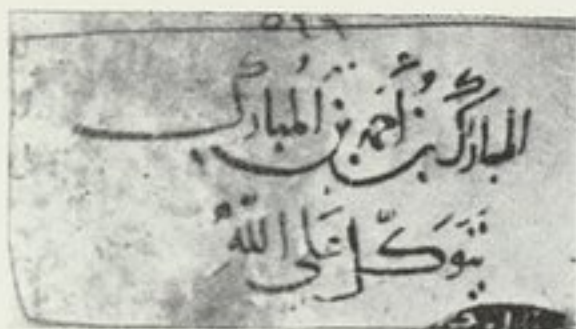 ٥٦٩
المبارَك بنُ أَحمد بن المُبارك
يَتَوَكَّل عَلَى اللّٰه